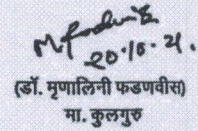 20.10.21.
(डॉ. मृणालिनी फडणवीस)
मा. कुलगुरु